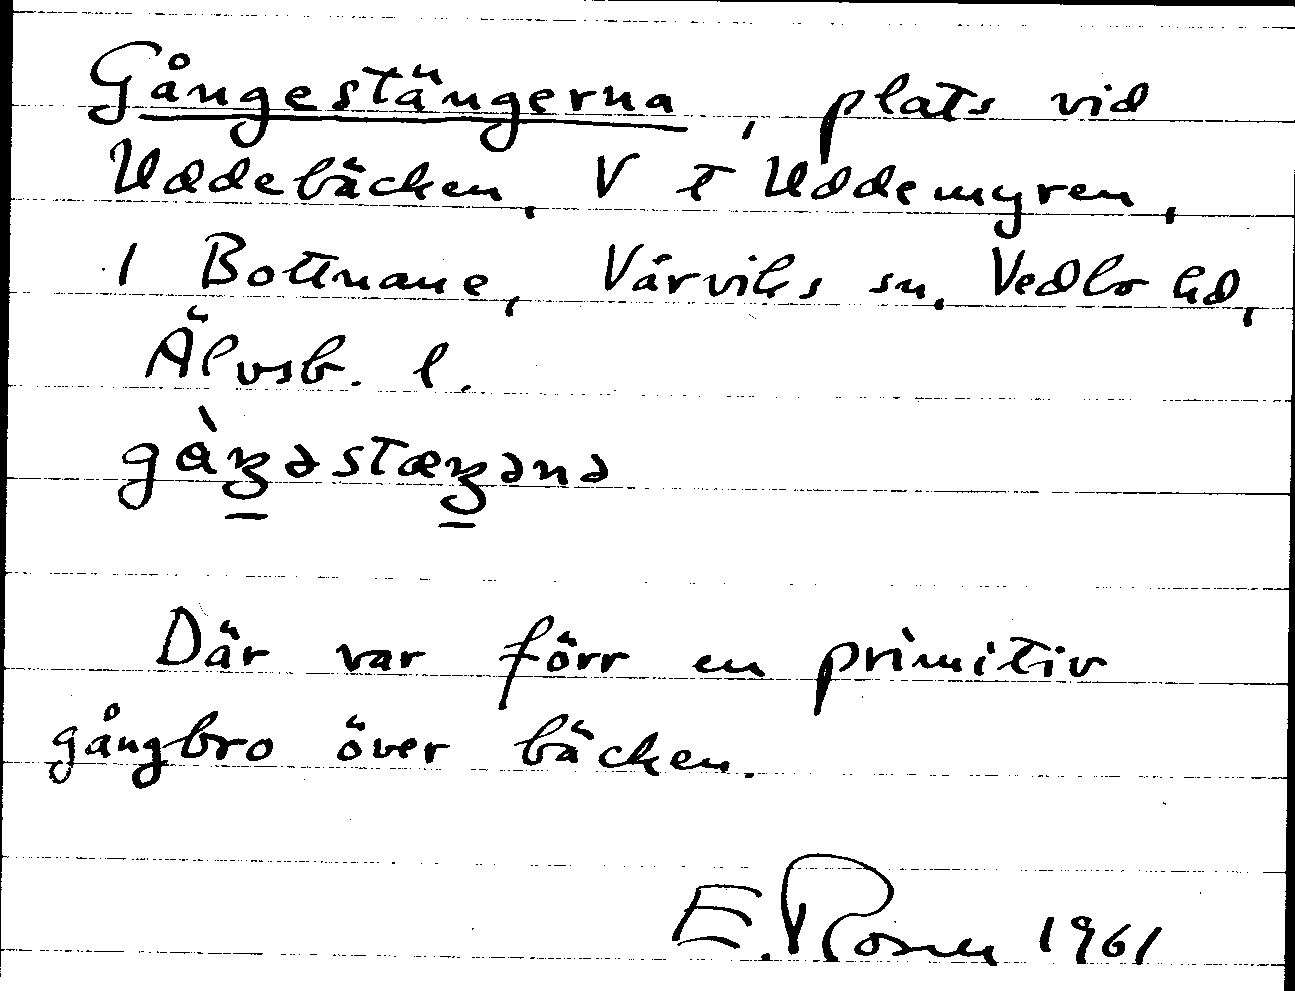 Gångestängerna, plats vid
Uddebäcken, V t Uddemyren,
i Bottnane, Värviks sn, Vedbo hd,
Älvsb. l.
gàꞔəstæꞔənə
Där var förr en primitiv
gångbro över bäcken.
E. Rosen 1961